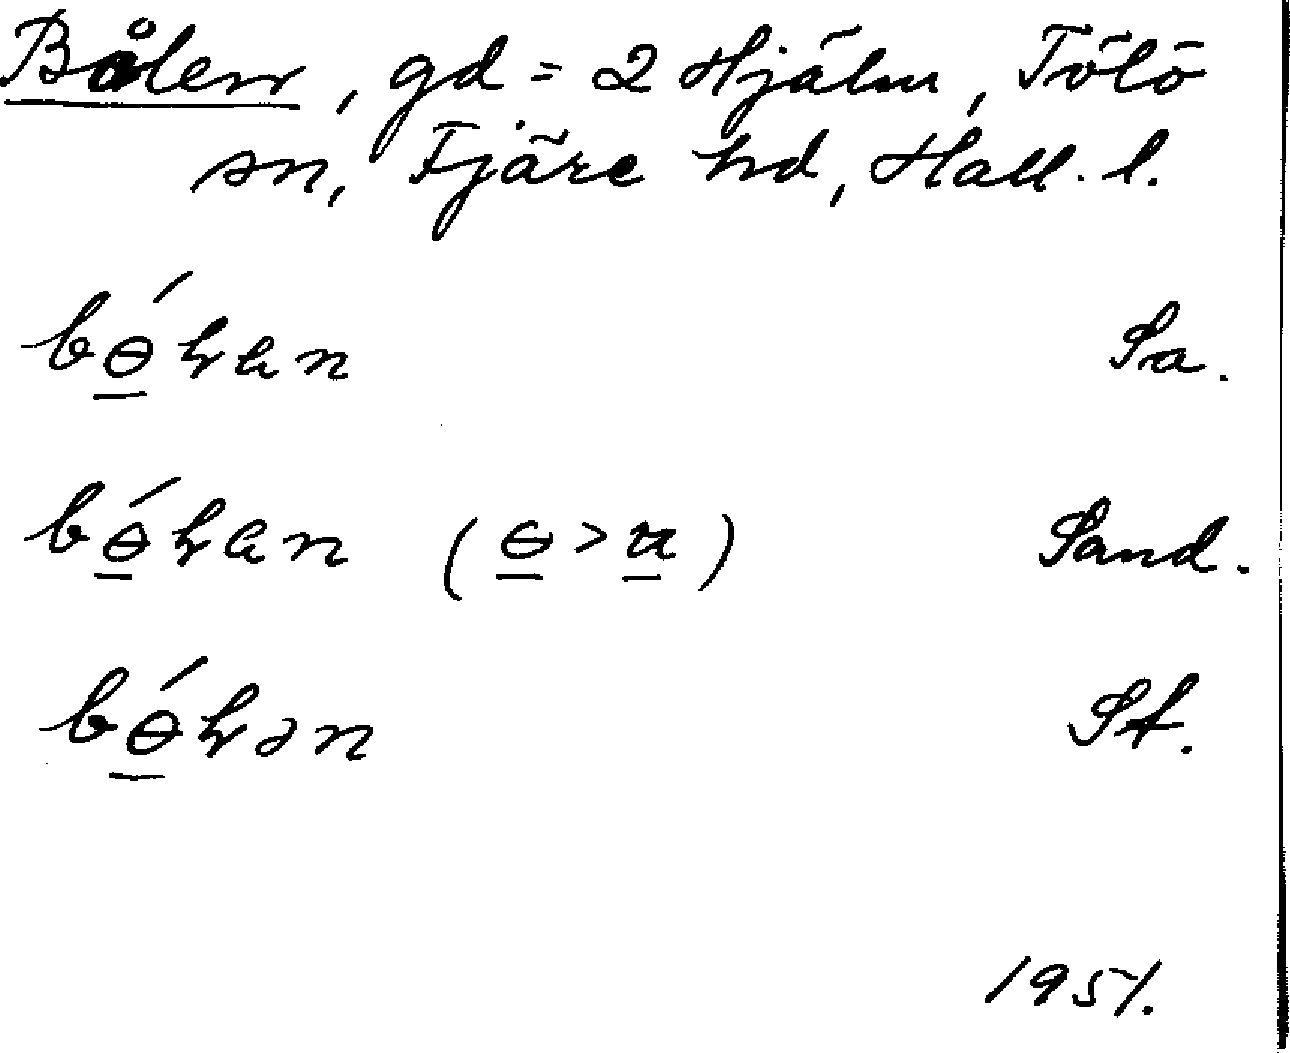 Bålen, gd = 2 Hjälm, Tölö
sn, Fjäre hd, Hall. l.
bɵ̲́ɽan Sa.
bɵ̲́ɽan (ɵ̲ > u̲) Sand.
bɵ̲́ɽən St.
1951.